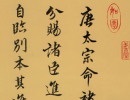 唐太宗命褚
分賜諸臣進
自臨别本其